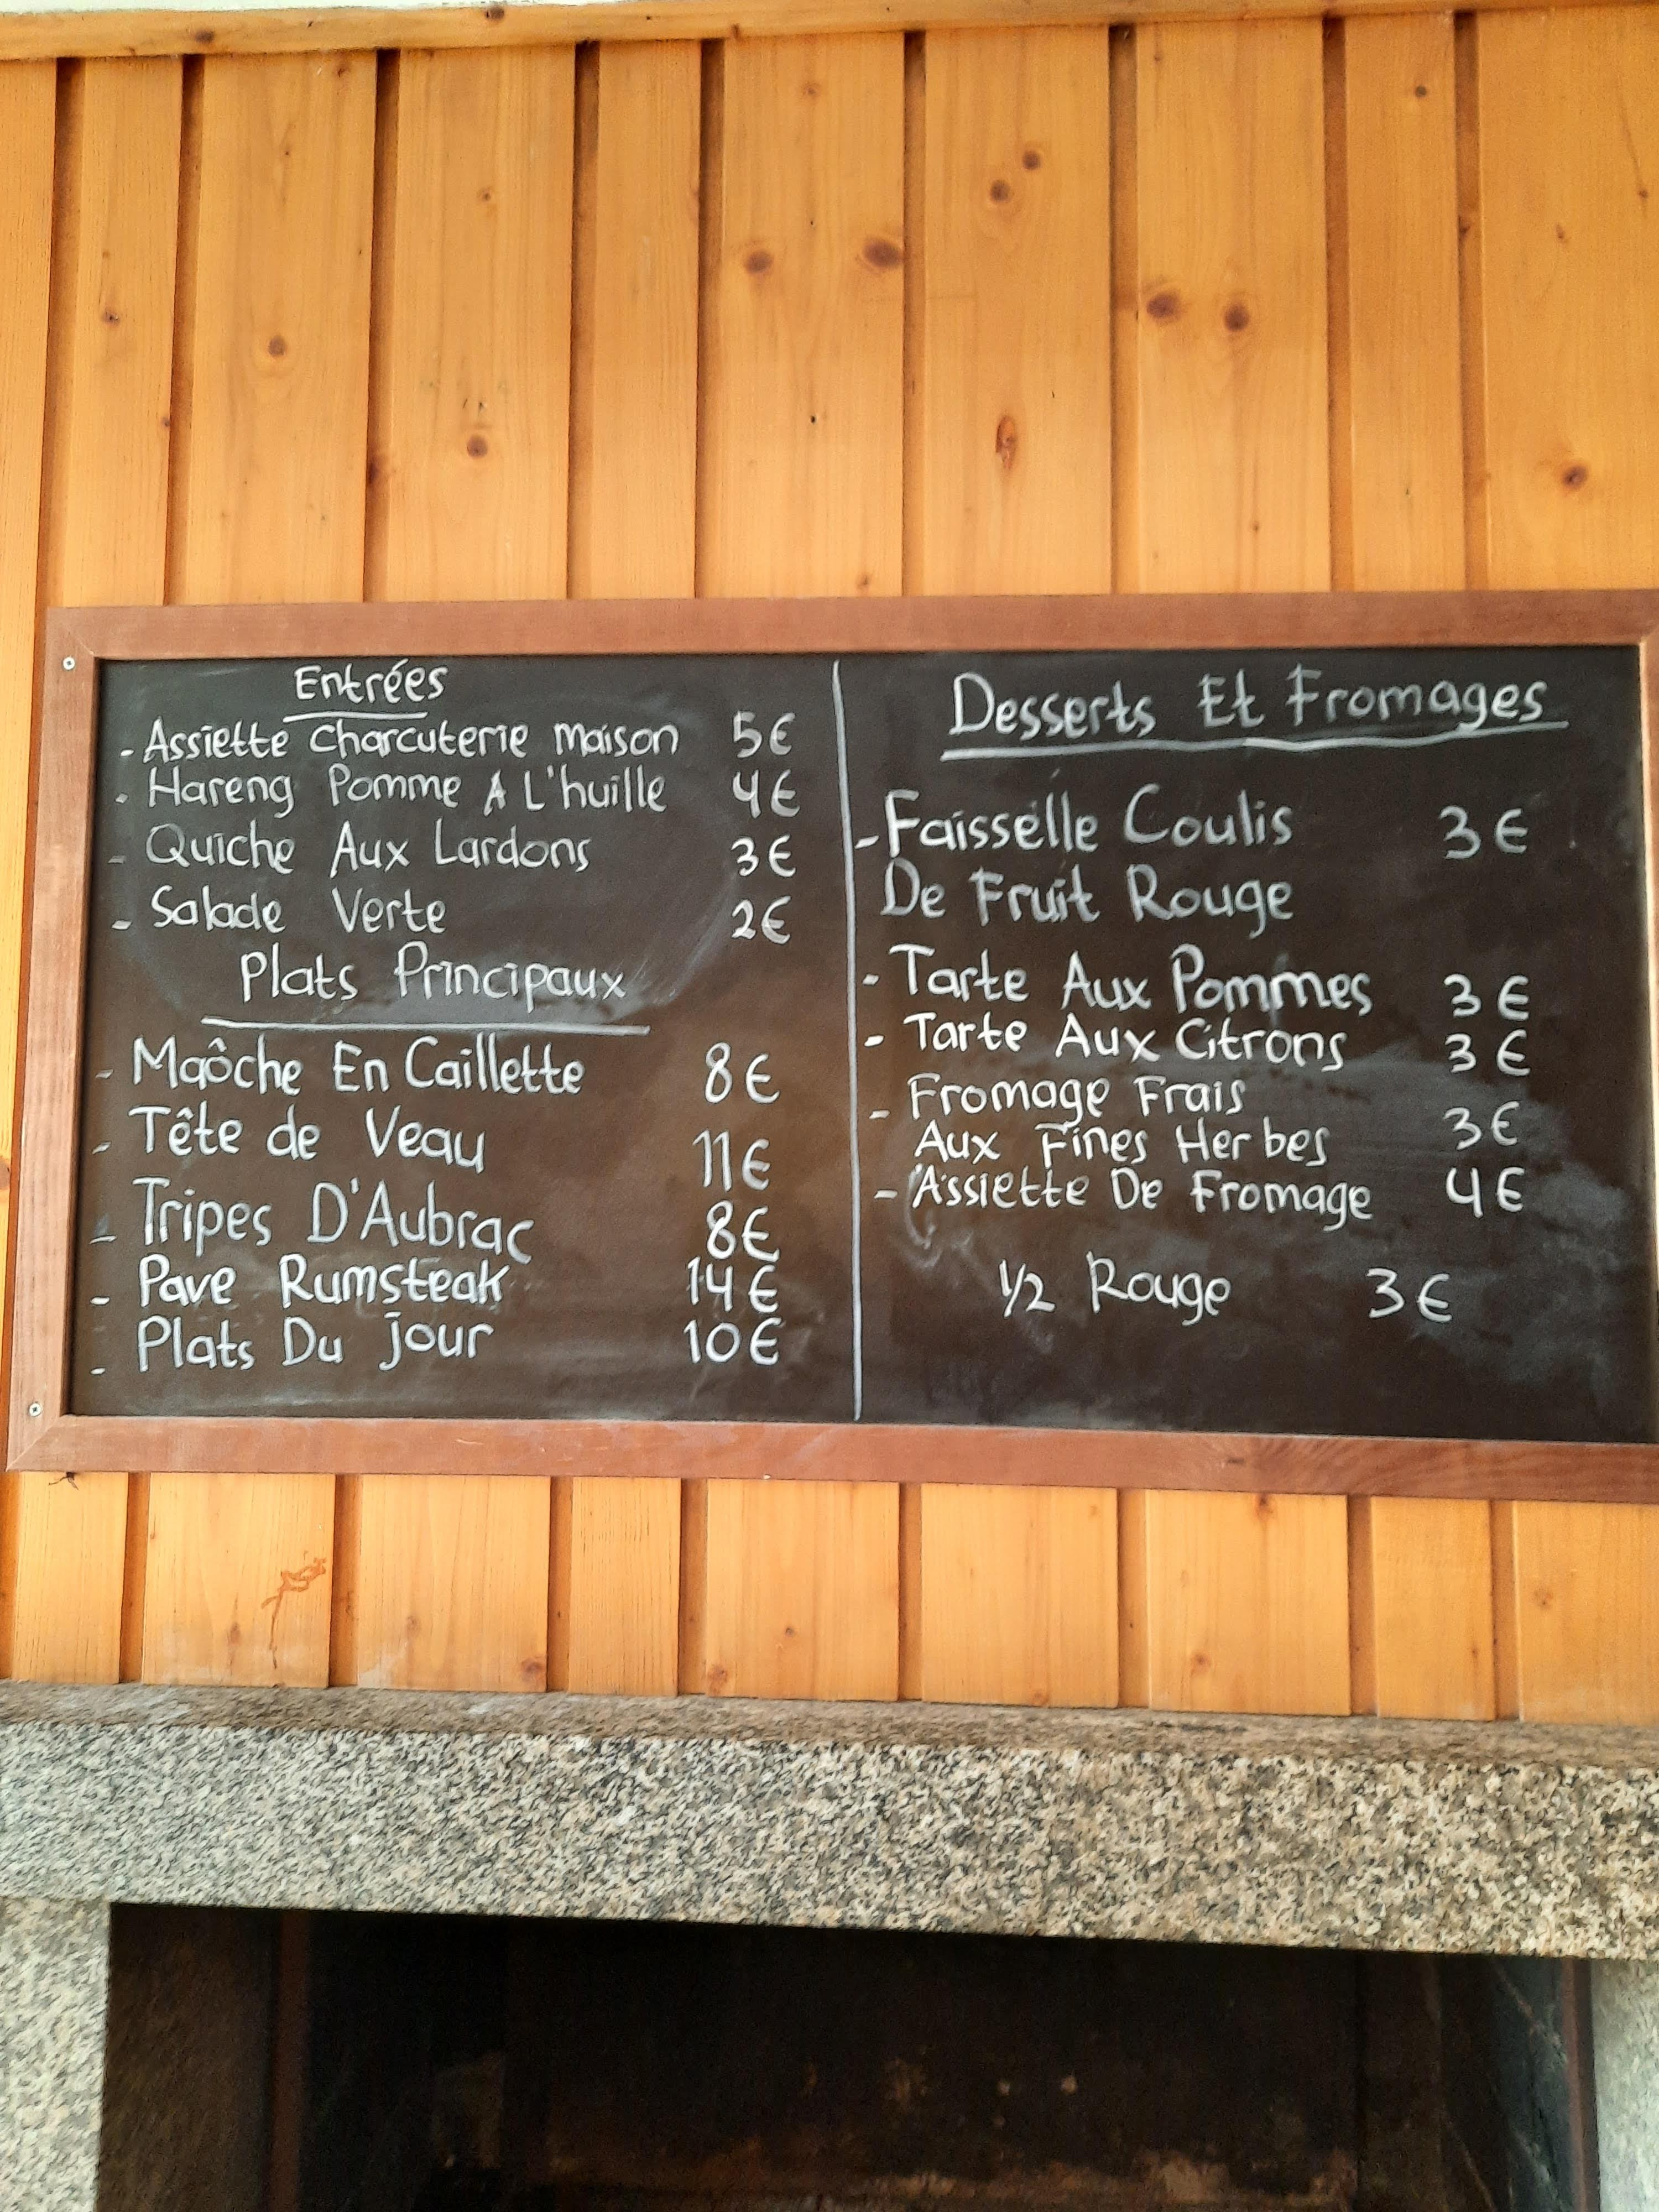 Entrées
- Assiette Charcuterie maison 5€
- Hareng Pomme A L'huille 4€
- Quiche Aux Lardons 3€
- Salade Verte 2€
Plats Principaux
- Maôche En Caillette 8€
- Tête de Veau 11€
- Tripes D'Aubrac 8€
- Pave Rumsteak 14€
- Plats Du jour 10€
Desserts Et Fromages
- Faisselle Coulis 3€
De Fruit Rouge
- Tarte Aux Pommes 3€
- Tarte Aux Citrons 3€
- Fromage Frais
Aux Fines Herbes 3€
- Assiette De Fromage 4€
1/2 Rouge 3€